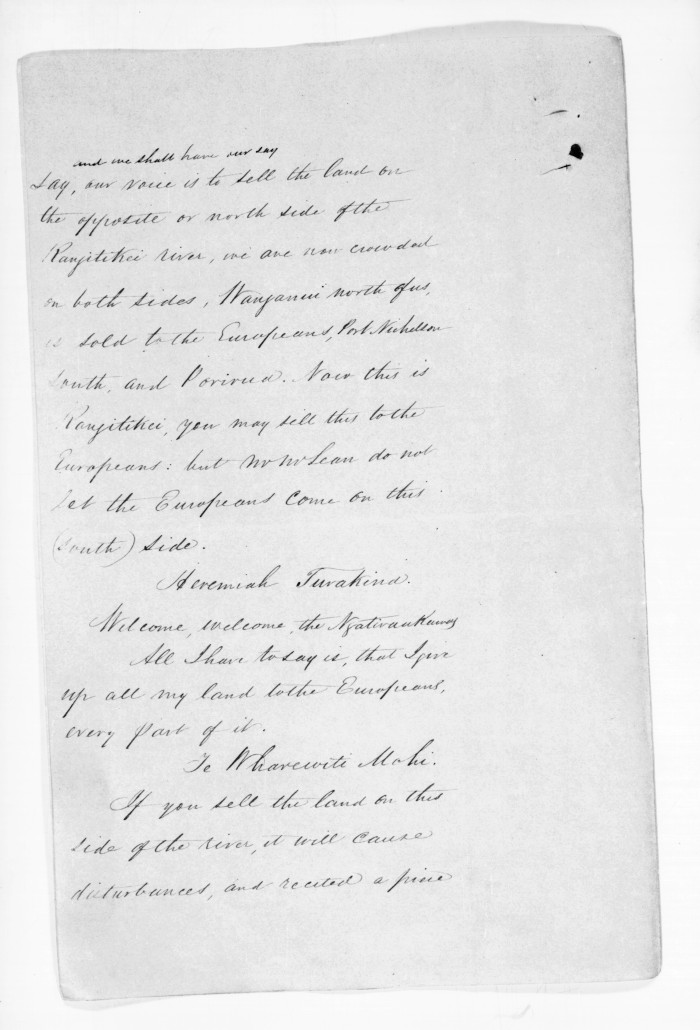 and we shall have our say
say, our voice is to sell the land on
the opposite or north side of the
Rangitikei river, we are now crowded
on both sides, Wanganui north of us,
is sold to the Europeans, Port Nicholson
south, and Porirua. Now this is
Rangitikei, you may sell this to the
Europeans: but Mr McLean do not
let the Europeans come on this
(south) side.
Heremiah Turakina.
Welcome, welcome, the Ngatiraukawas
All I have to say is, that I give
up all my land to the Europeans,
every part of it.
Te Wharewiti Mohi.
If you sell the land on this
side of the river, it will cause
disturbances, and recited a piece